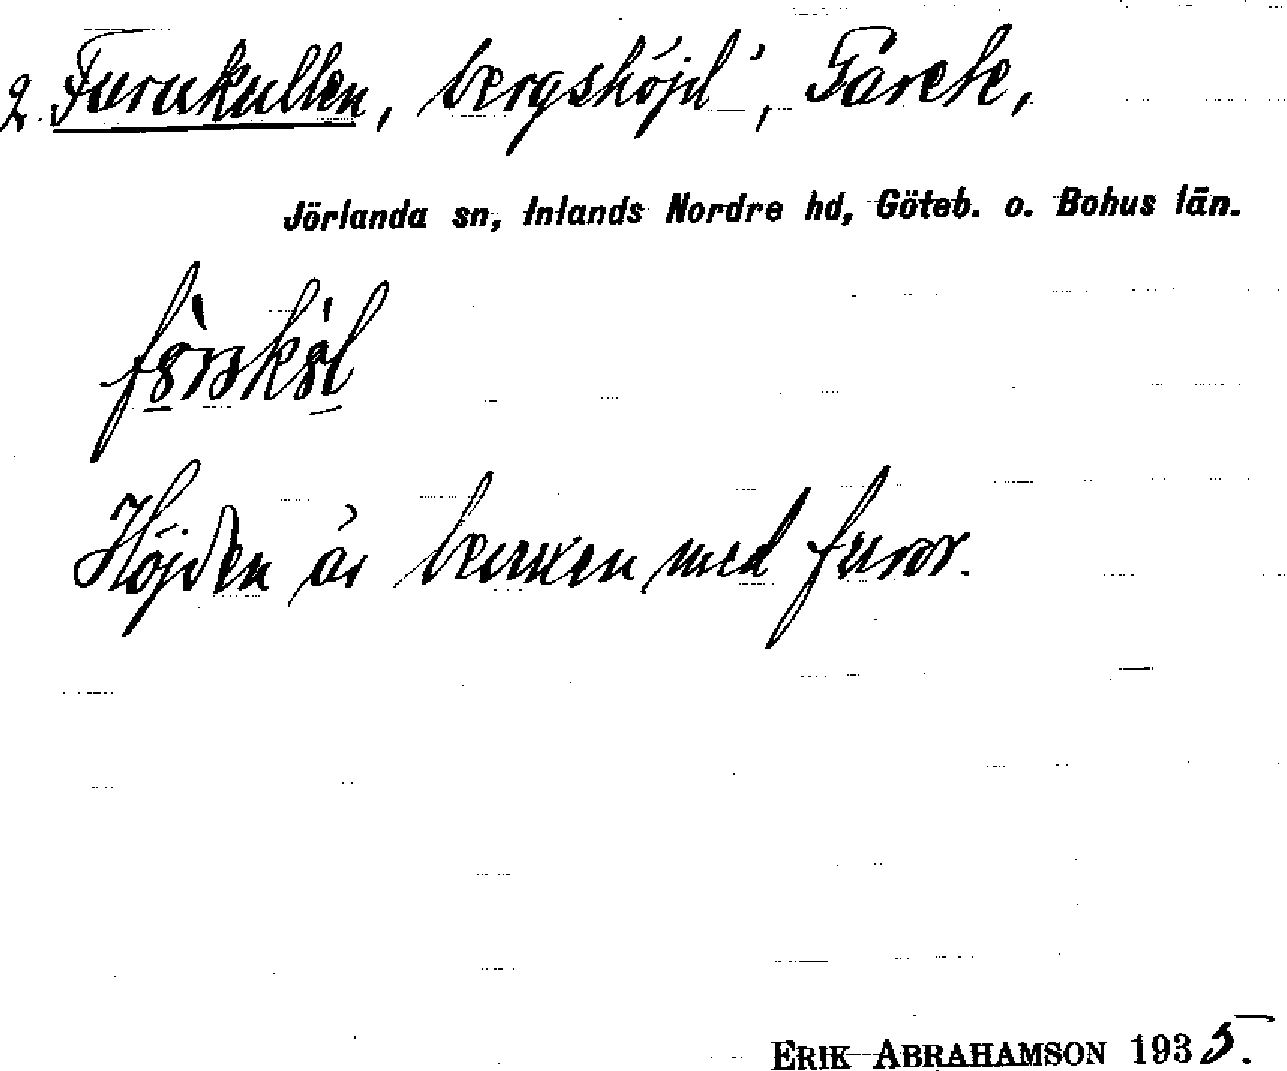 2. Furukullen, bergshöjd, Tåreh,
Jörlanda sn, Inlands Nordre hd, Göteb. o. Bohus län.
Höjden är bevuxen med furor.
ERIK ABRAHAMSON 1935.